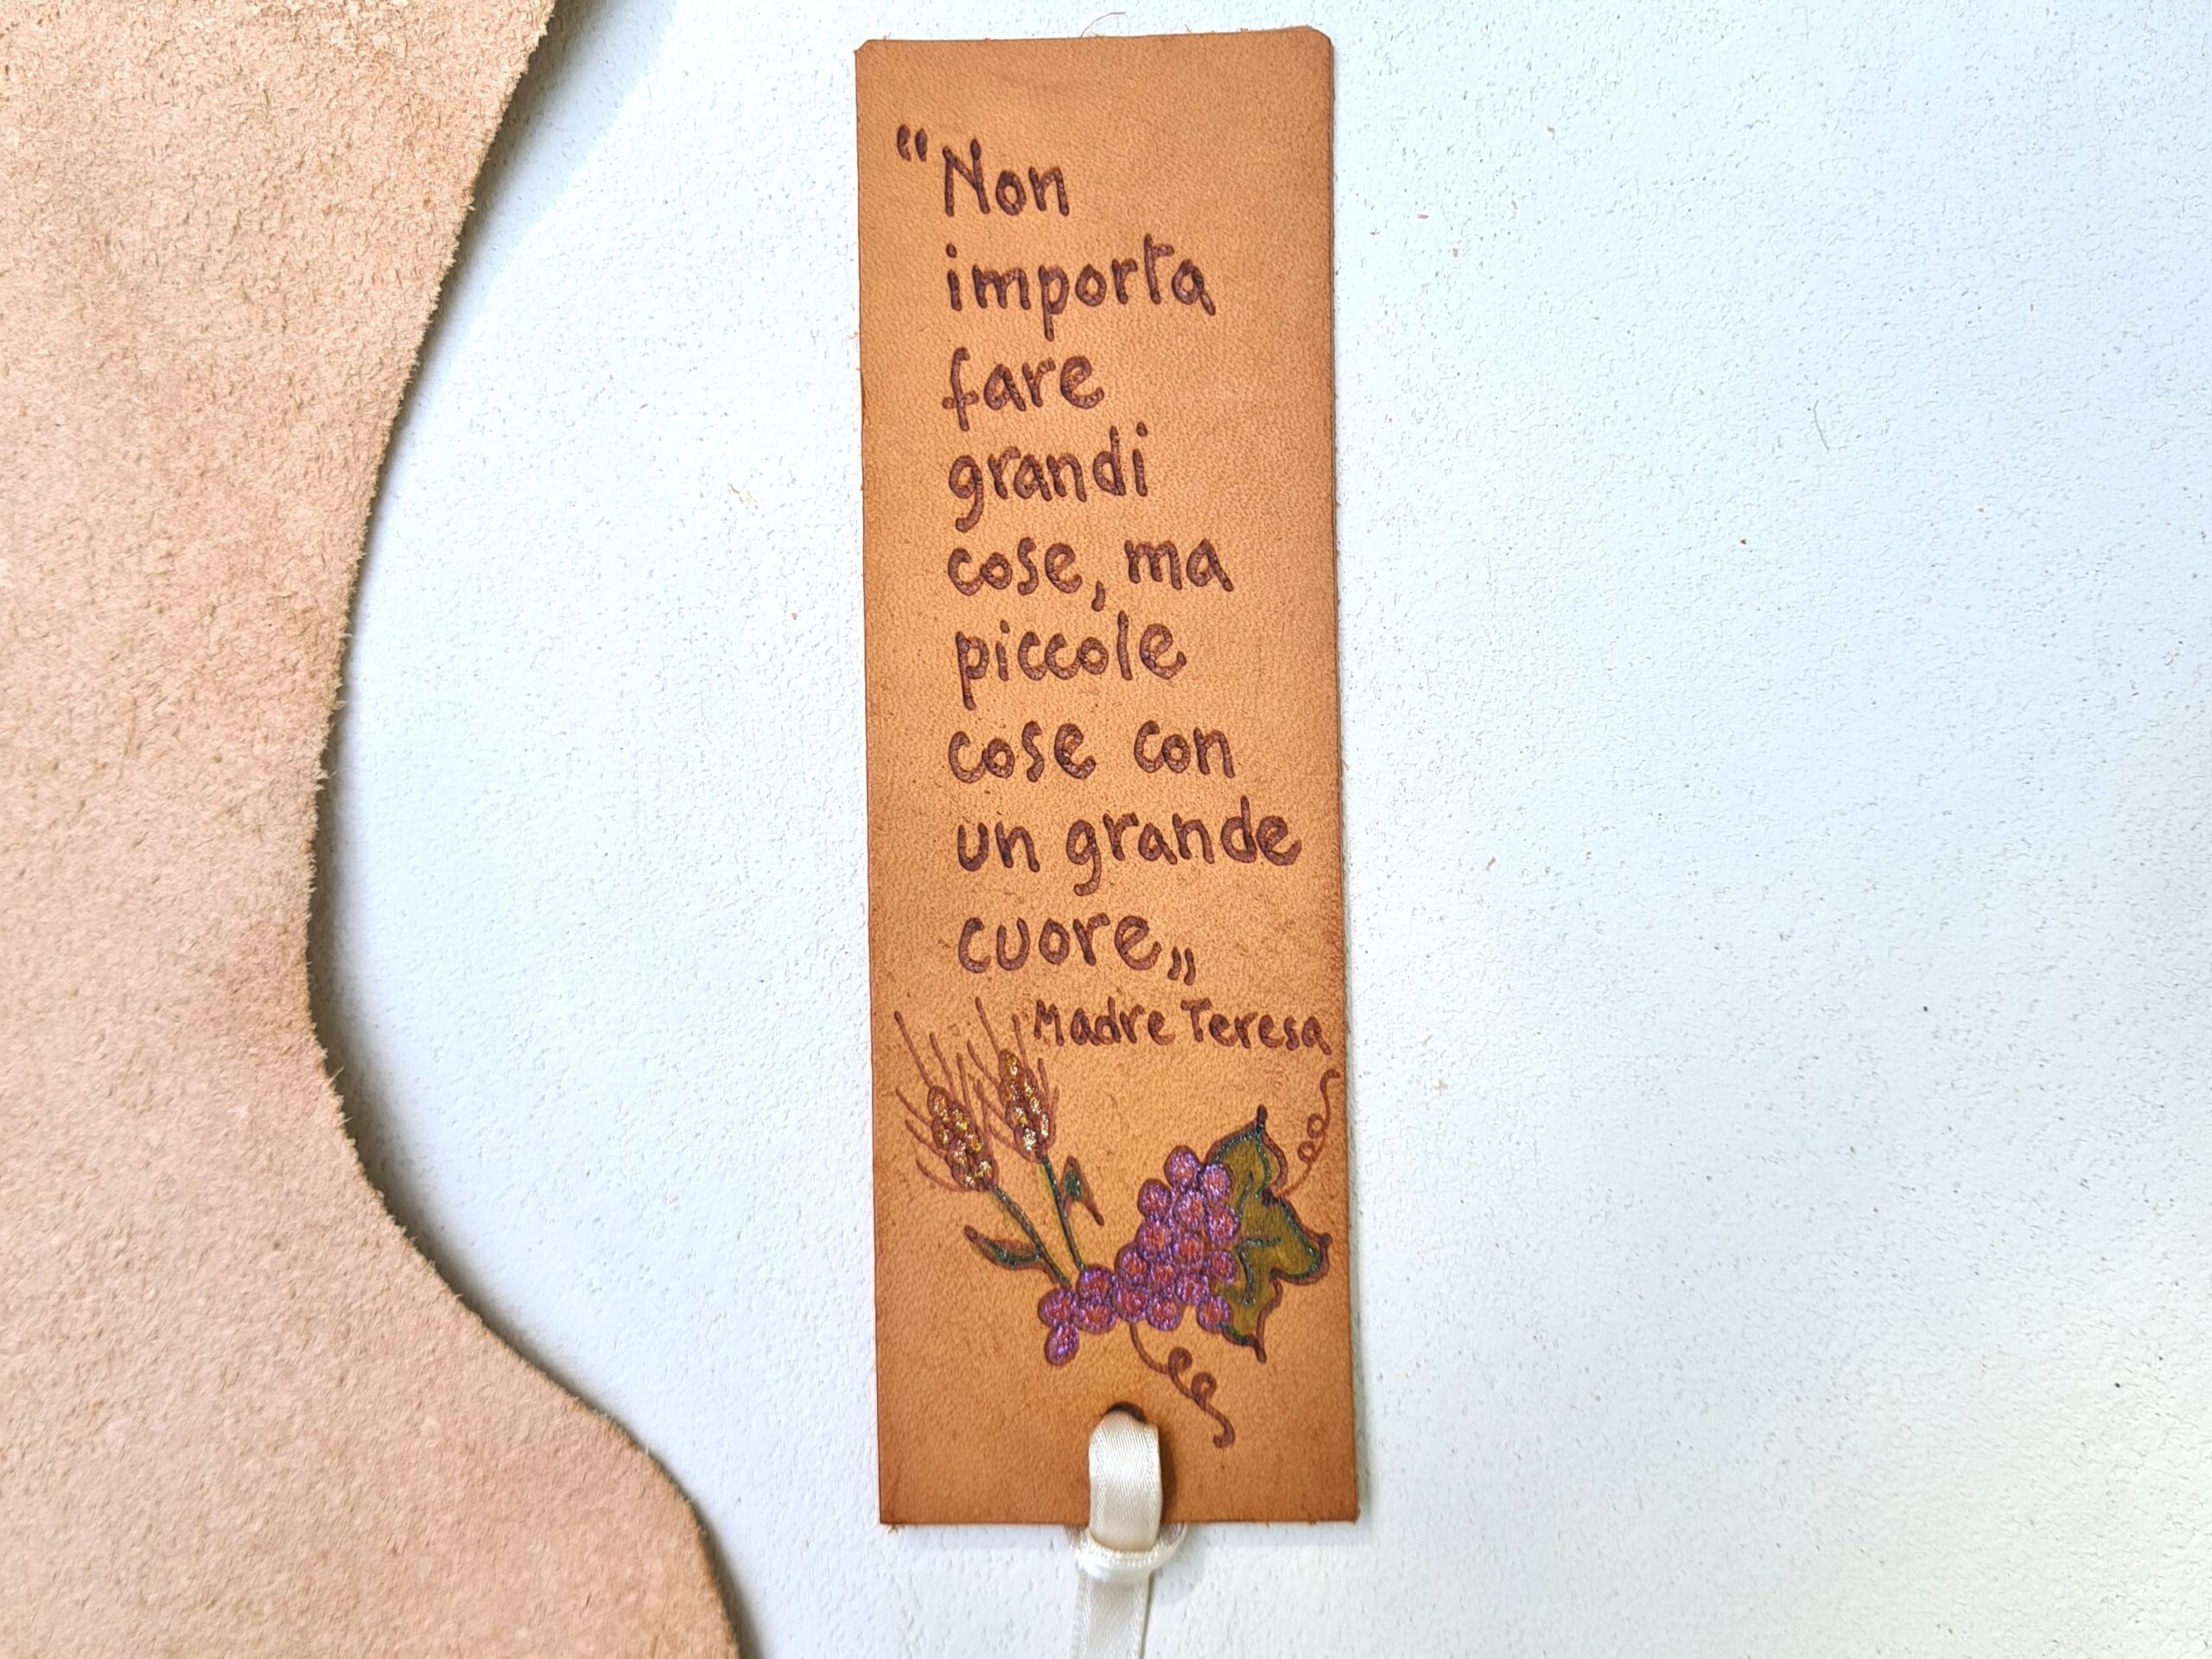 “Non
importa
fare
grandi
cose, ma
piccole
cose con
un grande
cuore„
Madre Teresa